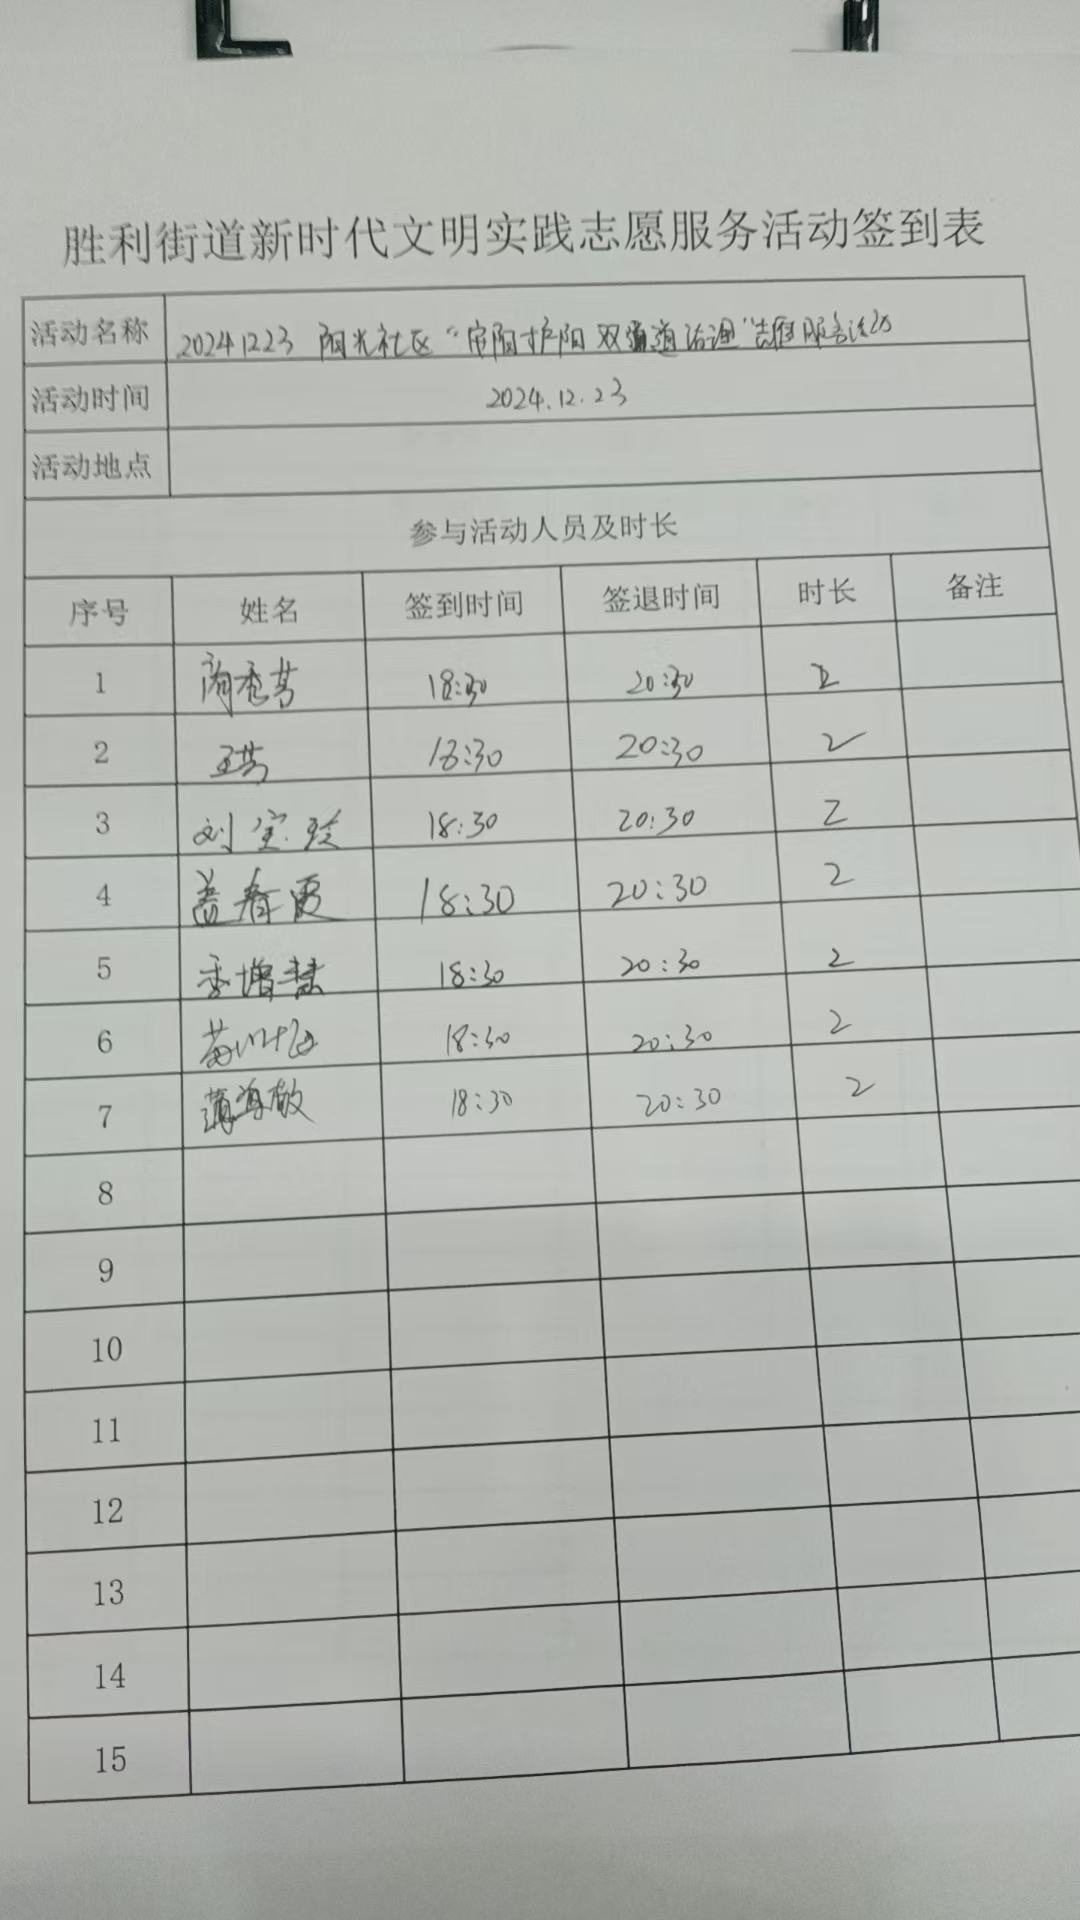 胜利街道新时代文明实践志愿服务活动签到表
活动名称 20241223 阳光社区“ 双通道治理”志愿服务活动
活动时间 2024.12.23
活动地点
参与活动人员及时长
序号 姓名 签到时间 签退时间 时长 备注
1 18:30 20:30 2
2 18:30 20:30 2
3 刘宝玲 18:30 20:30 2
4 盖春霞 18:30 20:30 2
5 季增慧 18:30 20:30 2
6 18:30 20:30 2
7 18:30 20:30 2
8
9
10
11
12
13
14
15